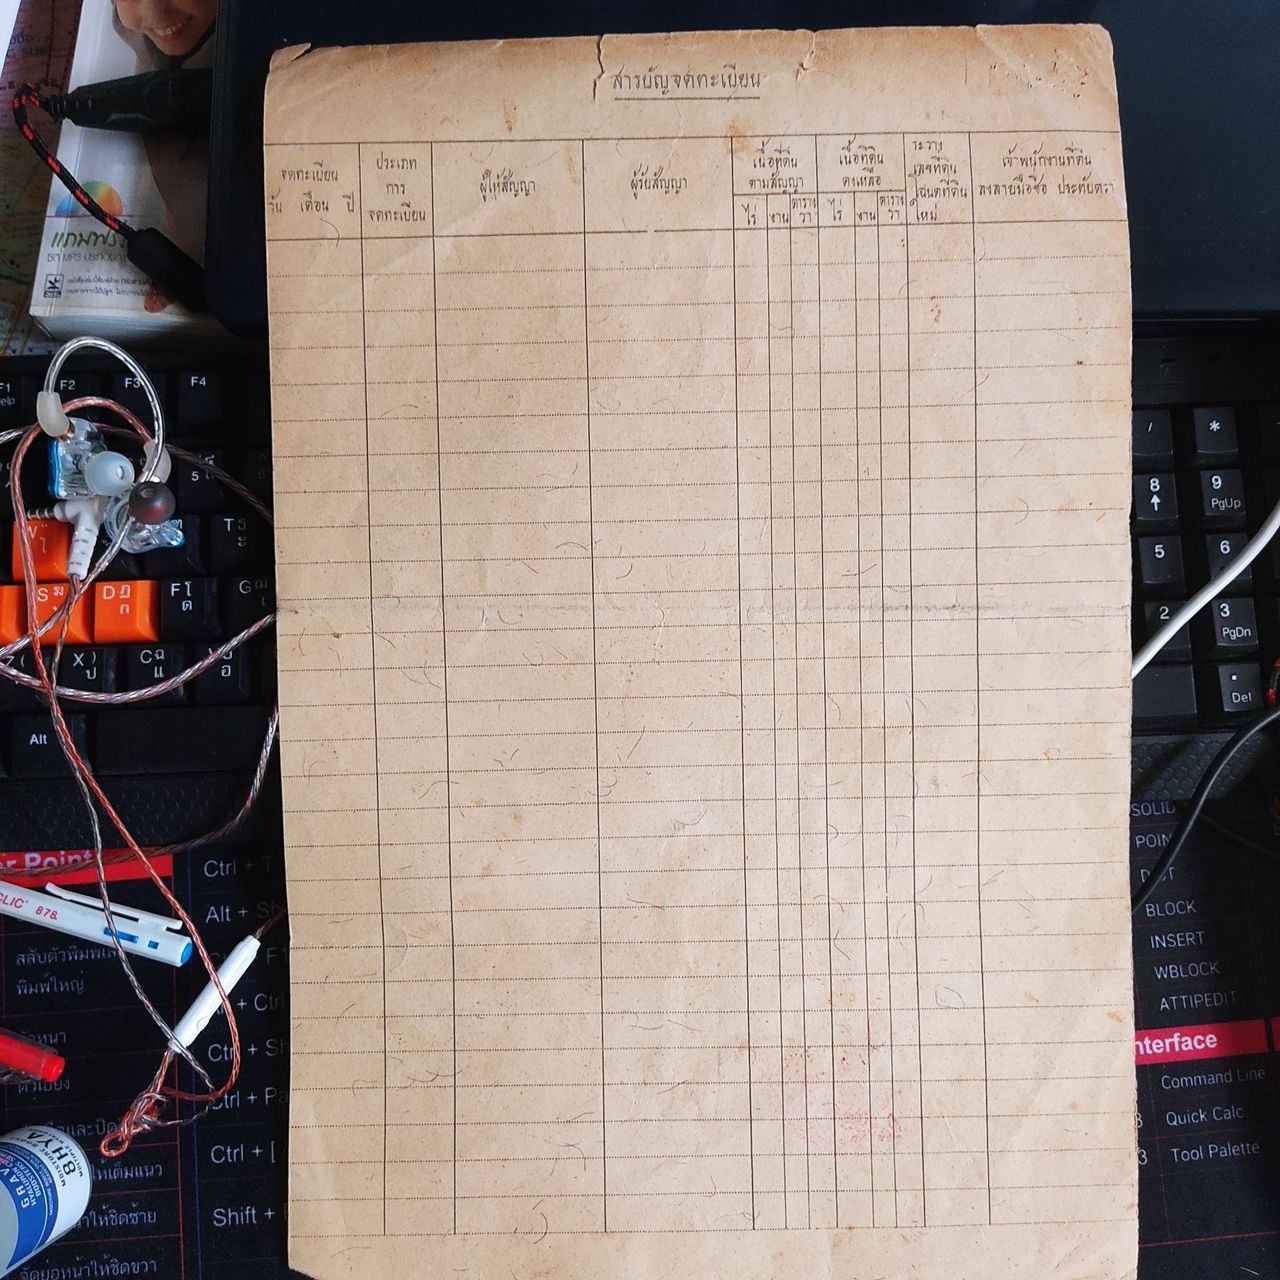 สารบัญจดทะเบียน
จดทะเบียน
วัน เดือน ปี
ประเภท
การ
จดทะเบียน
ผู้ให้สัญญา
ผู้รับสัญญา
เนื้อที่ดิน
ตามสัญญา
ไร่ งาน ตาราง
วา
เนื้อที่ดิน
คงเหลือ
ไร่ งาน ตาราง
วา
ระวาง
เลขที่ดิน
โฉนดที่ดิน
ใหม่
เจ้าพนักงานที่ดิน
ลงลายมือชื่อ ประทับตรา
F1
Help
F2
F3
F4
5
T
S
D
F
G
X
C
Alt
/
*
8
9
PgUp
5
6
2
3
PgDn
.
Del
er Point
Ctrl + T
Alt + Sh
F1
+ Ctrl
Ctrl + Sh
Ctrl + Pa
Ctrl + [
Shift +
CLIC 878
พิมพ์ใหญ่
ให้เต็มแนว
จัดย่อหน้าให้ชิดขวา
8HYA
SOLID
POIN
BLOCK
INSERT
WBLOCK
ATTIPEDIT
nterface
Command Line
Quick Calc
3 Tool Palette